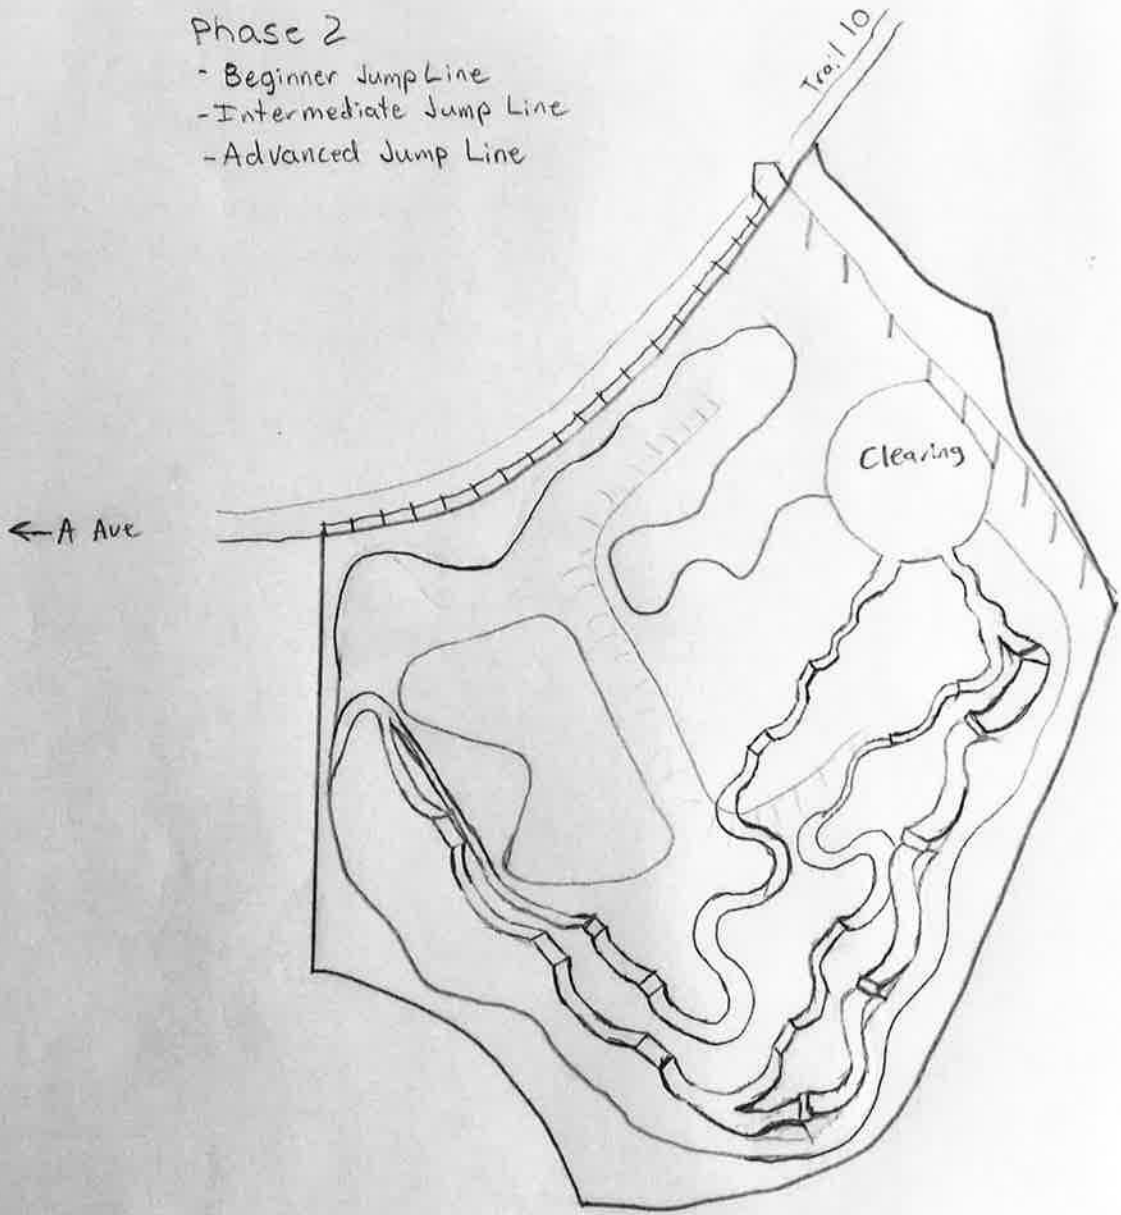 Phase 2
- Beginner Jump Line
- Intermediate Jump Line
- Advanced Jump Line
Trail 10
Clearing
← A Ave